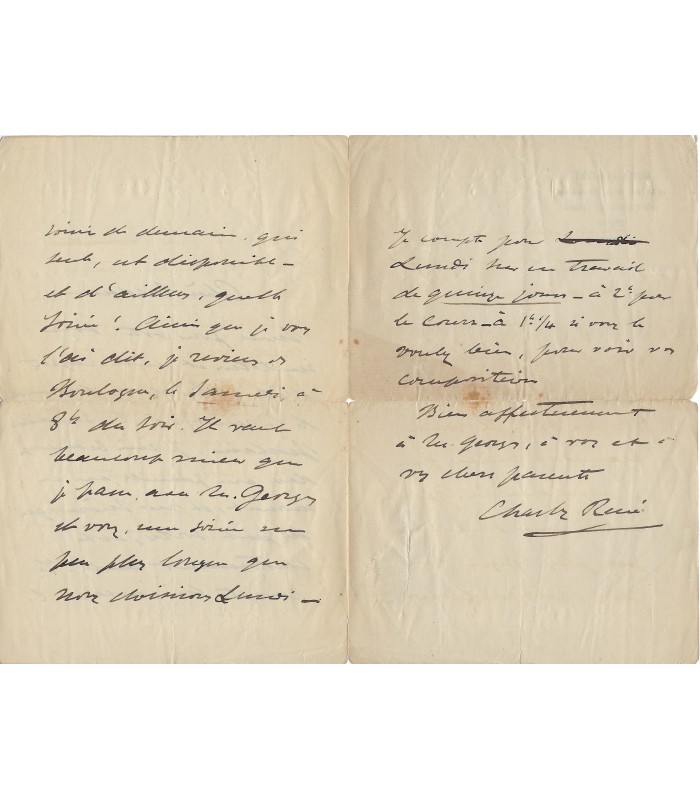 soirée de demain, qui
seule, est disponible –
et d'ailleurs, quelle
soirée! Ainsi que je vous
l'ai dit, je reviens de
Boulogne, le Samedi, à
8h du soir. Il vaut
beaucoup mieux que
je passe avec M. Georges
et vous, une soirée un
peu plus longue que
nous choisissions Lundi –
Je compte pour
Lundi sur un travail
de quinze jours – à 2h pour
le cours – à 1h 1/4 si vous le
voulez bien, pour voir vos
compositions
Bien affectueusement
à M. Georges, à vous et à
vos chers parents
Charles René